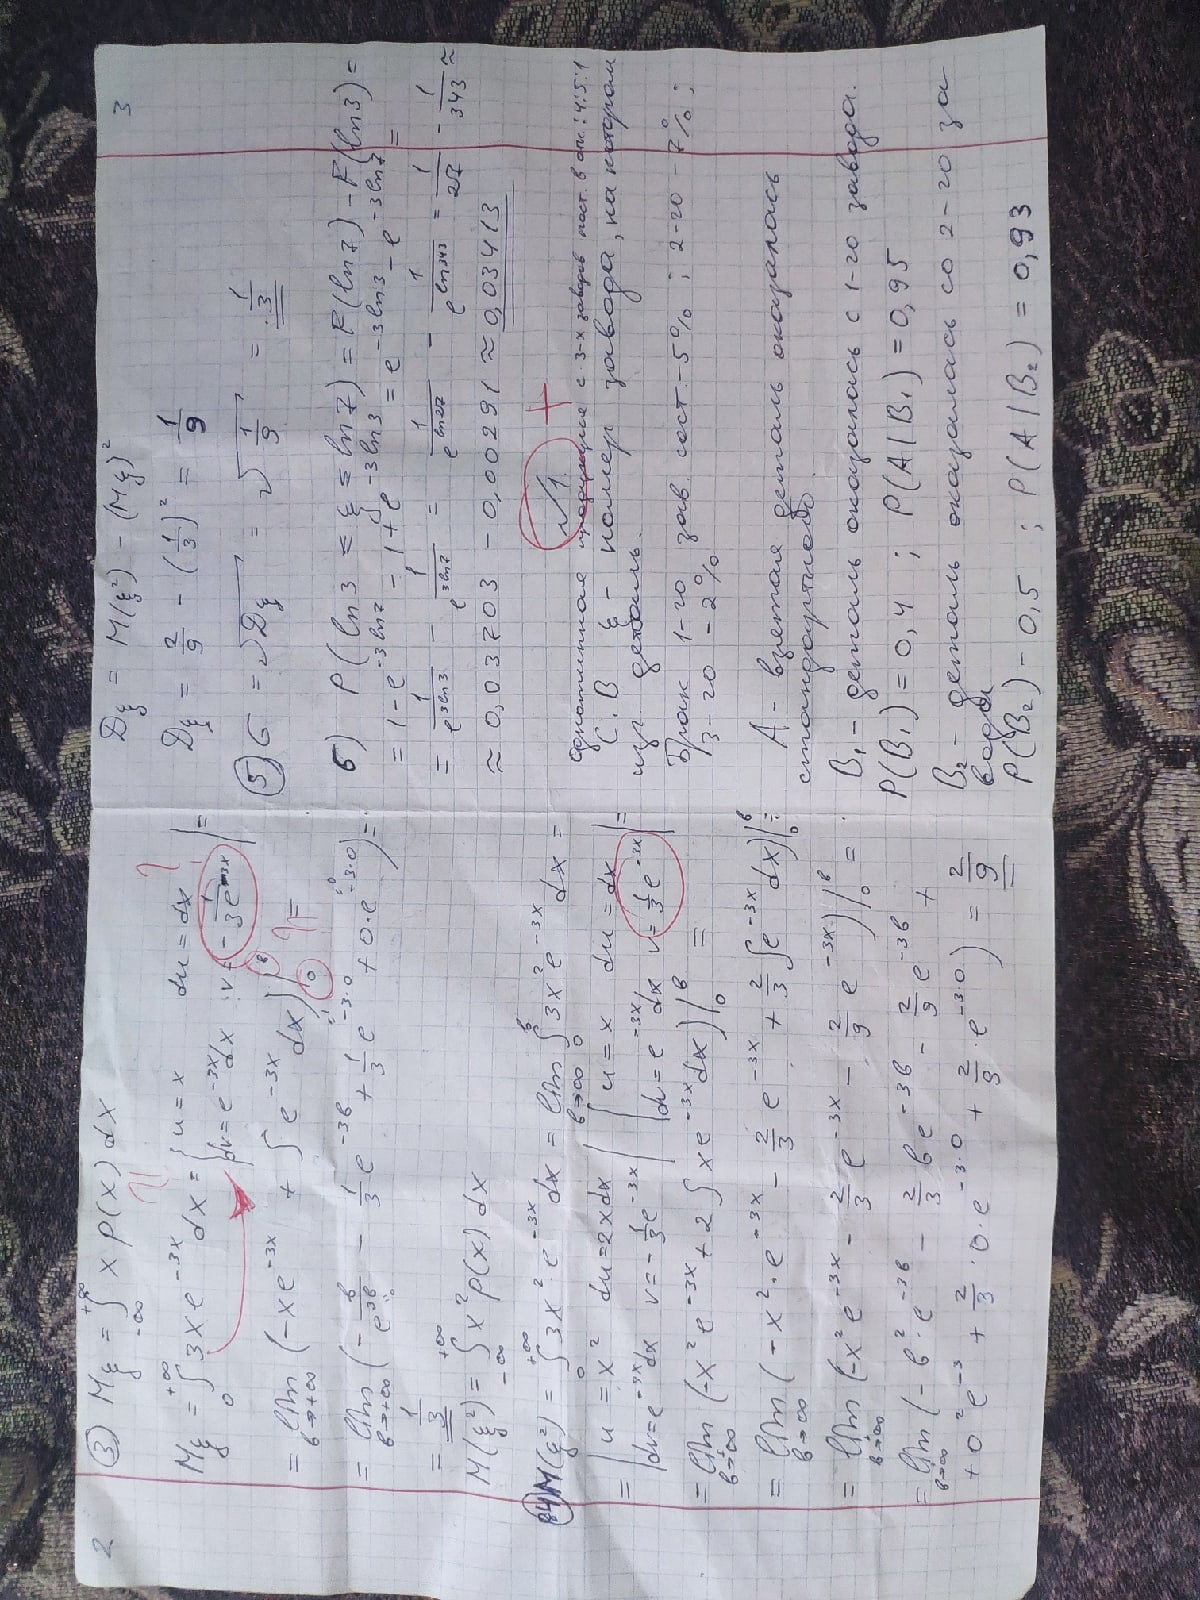 2
③ Mξ = ∫_{-∞}^{+∞} x P(x) dx
Mξ = ∫_0^{+∞} 3xe^{-3x} dx = { u = x du = dx
dv = e^{-3x}dx v = -1/3 e^{-3x} | =
= lim_{в→+∞} (-xe^{-3x} + ∫ e^{-3x} dx)|_0^в =
= lim_{в→+∞} (-в/e^{3в} - 1/3 e^{-3в} + 1/3 e^{-3·0} + 0·e^{-3·0}) =
= 1/3
M(ξ²) = ∫_{-∞}^{+∞} x² P(x) dx
④ M(ξ²) = ∫_0^{+∞} 3x² e^{-3x} dx = lim_{в→∞} ∫_0^в 3x² e^{-3x} dx =
= | u = x² du = 2xdx | | u = x du = dx | =
| dv = e^{-3x}dx v = -1/3 e^{-3x} | | dv = e^{-3x}dx v = 1/3 e^{-3x} |
= lim_{в→∞} (-x² e^{-3x} + 2∫ xe^{-3x} dx)|_0^в =
= lim_{в→∞} (-x²·e^{-3x} - 2/3 e^{-3x} + 2/3 ∫e^{-3x} dx)|_0^в =
= lim_{в→∞} (-x² e^{-3x} - 2/3 e^{-3x} - 2/9 e^{-3x})|_0^в =
= lim_{в→∞} (-в²·e^{-3в} - 2/3 вe^{-3в} - 2/9 e^{-3в} +
+ 0² e^{-3} + 2/3·0·e^{-3·0} + 2/9·e^{-3·0}) = 2/9
3
Dξ = M(ξ²) - (Mξ)²
Dξ = 2/9 - (1/3)² = 1/9
⑤ σ = √Dξ = √(1/9) = 1/3
б) P(ln3 < ξ < ln7) = F(ln7) - F(ln3) =
= 1 - e^{-3ln7} - 1 + e^{-3ln3} = e^{-3ln3} - e^{-3ln7} =
= 1/e^{3ln3} - 1/e^{3ln7} = 1/e^{ln27} - 1/e^{ln343} = 1/27 - 1/343 ≈
≈ 0,03703 - 0,00291 ≈ 0,03413
√1 +
однотипная продукция с 3-х заводов пост. в отн.: 4:5:1
С.В ξ - номер завода, на котором
изг деталь.
Брак 1-го зав. сост - 5% ; 2-го - 7% ;
3-го - 2%
А - взятая деталь оказалась
стандартной
B₁ - деталь оказалась с 1-го завода.
P(B₁) = 0,4 ; P(A|B₁) = 0,95
B₂ - деталь оказалась со 2-го за-
вода
P(B₂) - 0,5 ; P(A|B₂) = 0,93